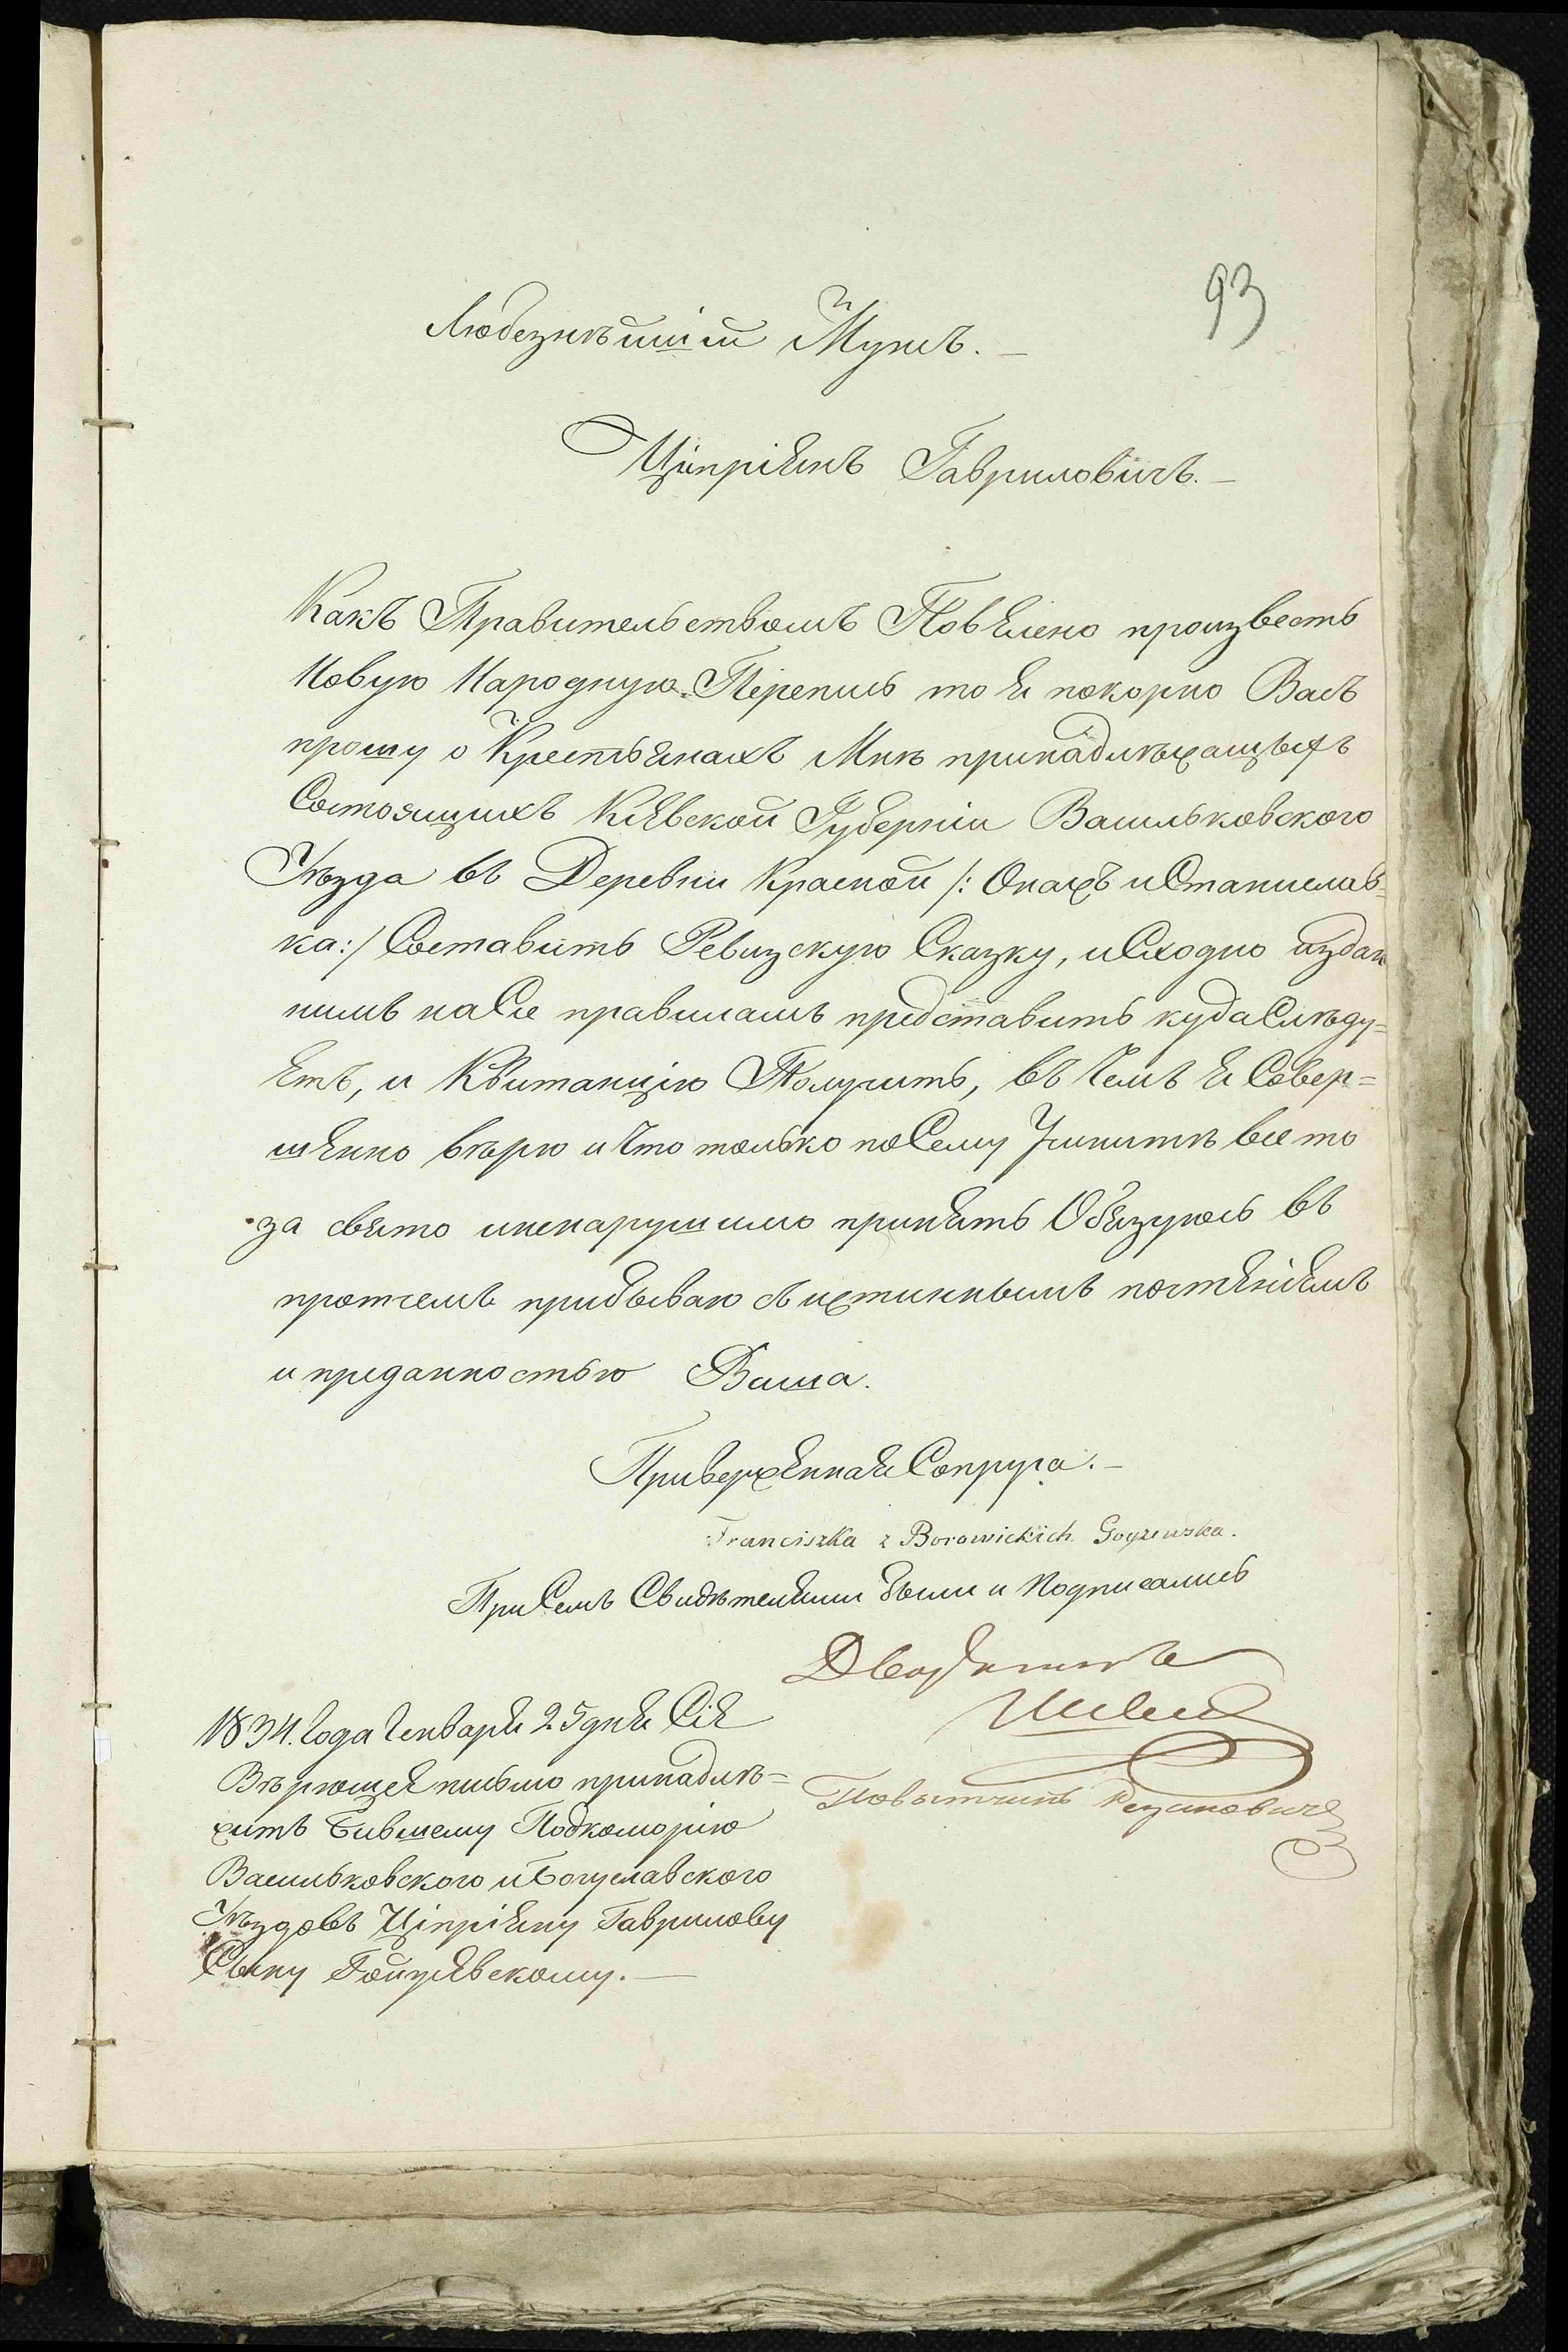 93
Любезнѣйшій Мужъ. —
Ципріянъ Гавриловичъ. —
Какъ Правительствомъ Повѣлено произвесть
Новую Народную Перепись то я покорно Васъ
прошу о Крестьянахъ Мнѣ принадлѣжащыхъ
Состоящихъ Кіевской Губерніи Васильковского
Уѣзда въ Деревни Красной /: Онажъ и Станислав=
ка:/ Составить Ревизскую Сказку, и Сходно издан
нимъ на Сіе правиламъ представить куда Слѣду=
етъ, и Квитанцію Получить, въ Чемъ я Совер=
шенно вѣрю и Что только по Сему Учинитѣ все то
за свято и ненарушимо принять Обязуюсь въ
протчемъ прибываю съ истиннымъ почтеніемъ
и преданностью Ваша.
Приверженная Сопруга. —
Franciszka z Borowickich Goyzewska.
При Семъ Свидѣтелями были и Подписались
Дворянинъ
Повытчикъ
1834. Года Генваря 25 дня Сіе
Вѣрющее письмо принадлѣ=
житъ Бившему Подкоморію
Васильковского и Богуславского
Уѣздовъ Ципріяну Гаврилову
Сыну Гойжевскому. —